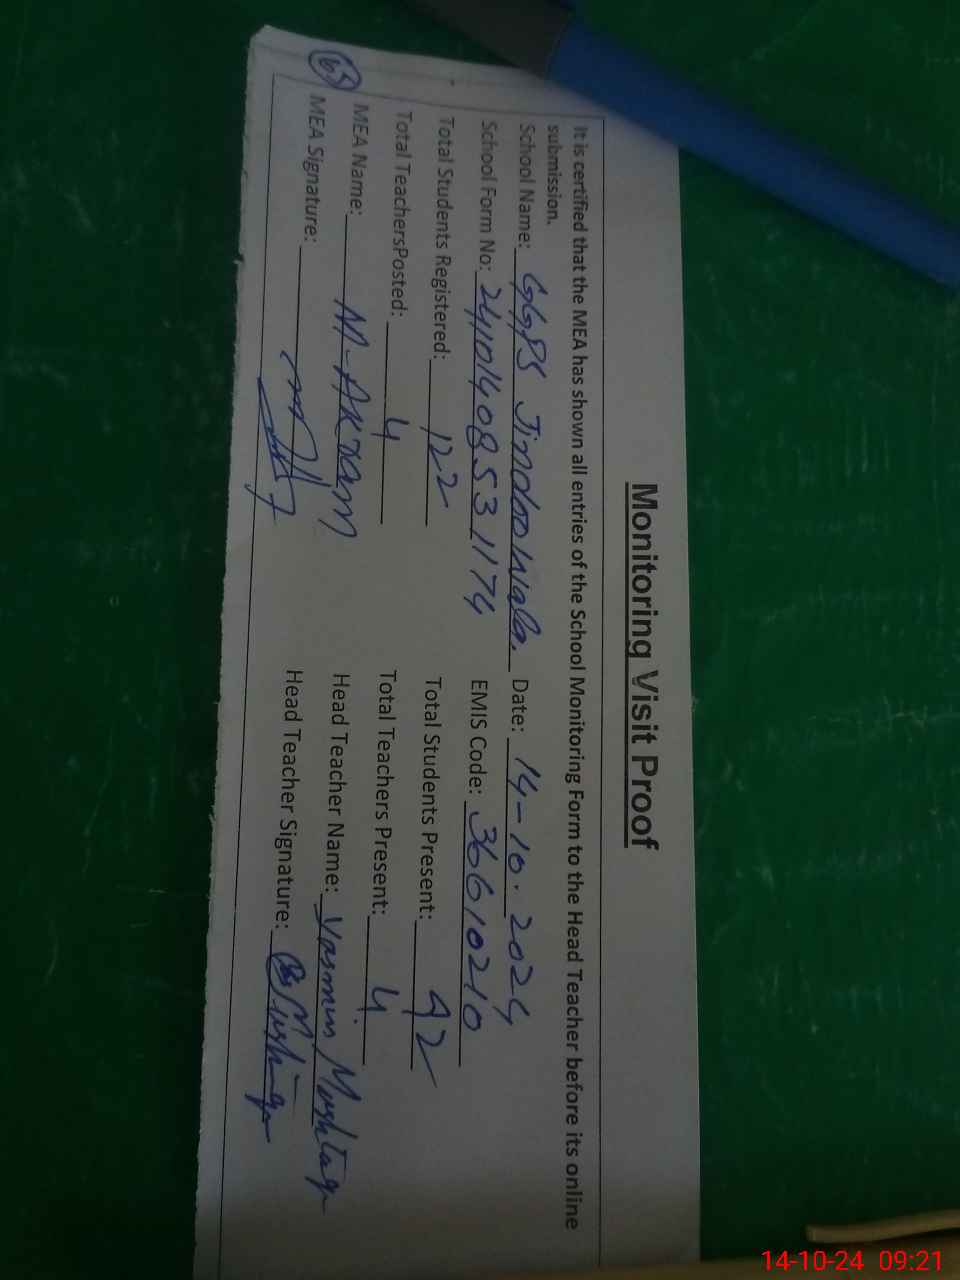 Monitoring Visit Proof
It is certified that the MEA has shown all entries of the School Monitoring Form to the Head Teacher before its online
submission.
School Name: GGPS Jindoo Wala. Date: 14-10-2024
School Form No: 24101408531174 EMIS Code: 36610210
Total Students Registered: 122 Total Students Present: 92
Total TeachersPosted: 4 Total Teachers Present: 4
MEA Name: M-AKram Head Teacher Name: Yasmin Mushtaq
MEA Signature: Head Teacher Signature: Mushtaq
65
14-10-24 09:21